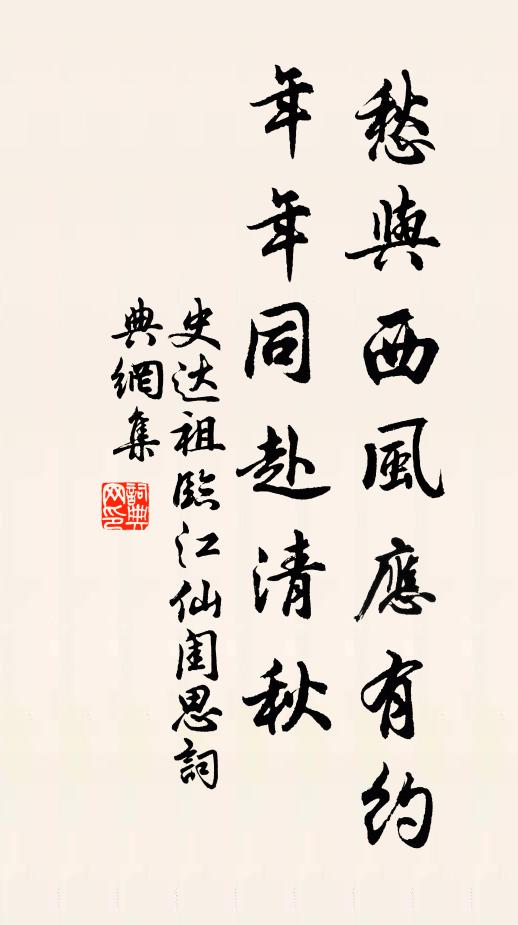 愁與西風應有約
年年同赴清秋
史达祖臨江仙閨思詞
典網集
詞典網印